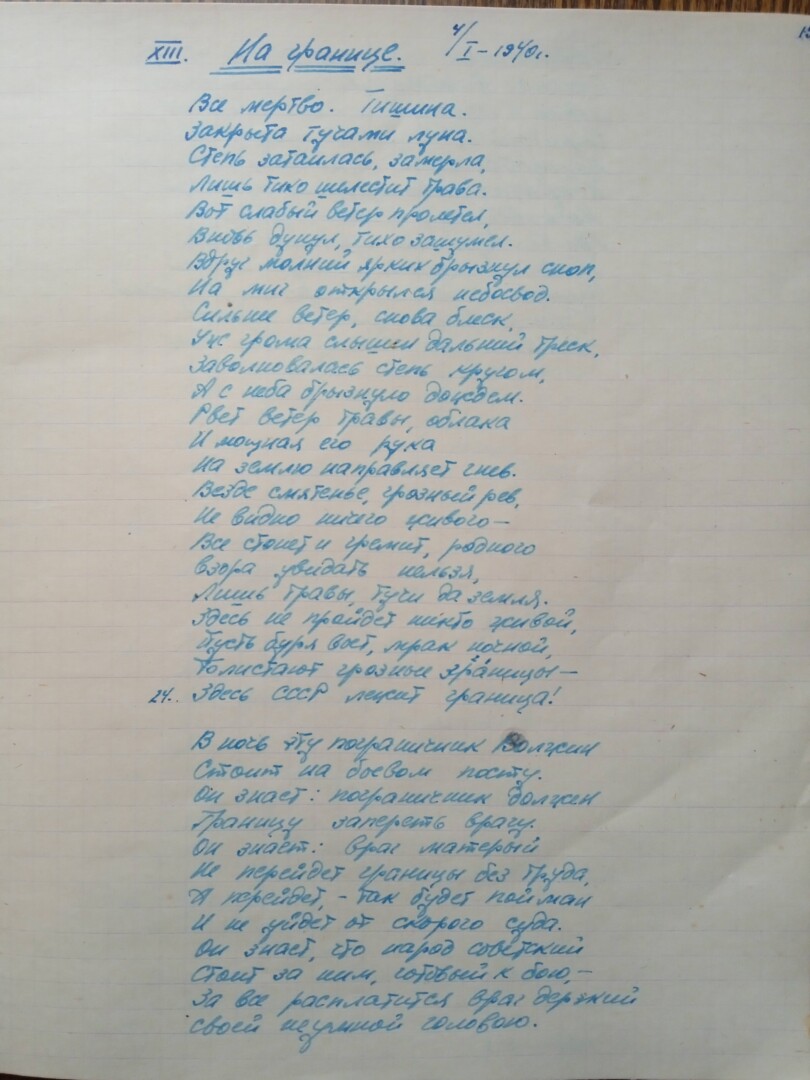 XIII. На границе. 4/I-1940г.
Все мертво. Тишина.
Закрыта тучами луна.
Степь затаилась, замерла,
Лишь тихо шелестит трава.
Вот слабый ветер пролетел,
Вновь дунул, тихо зашумел.
Вдруг молний ярких брызнул сноп,
На миг открылся небосвод.
Сильнее ветер, снова блеск,
Уж грома слышен дальний треск,
Заволновалась степь кругом,
А с неба брызнуло дождем.
Рвет ветер травы, облака
И мощная его рука
На землю направляет гнев.
Везде смятенье, грозный рев,
Не видно ничего живого—
Все стонет и гремит, родного
взора увидать нельзя,
Лишь травы, тучи да земля.
Здесь не пройдет никто живой,
Пусть буря воет, мрак ночной,
грозные
24. Здесь СССР лежит граница!
В ночь эту пограничник Волжин
Стоит на боевом посту.
Он знает: пограничник должен
Границу запереть врагу.
Он знает: враг матерый
Не перейдет границы без труда,
А перейдет, - так будет пойман
И не уйдет от скорого суда.
Он знает, что народ советский
Стоит за ним, готовый к бою,-
За все расплатится враг дерзкий
Своей неумной головою.